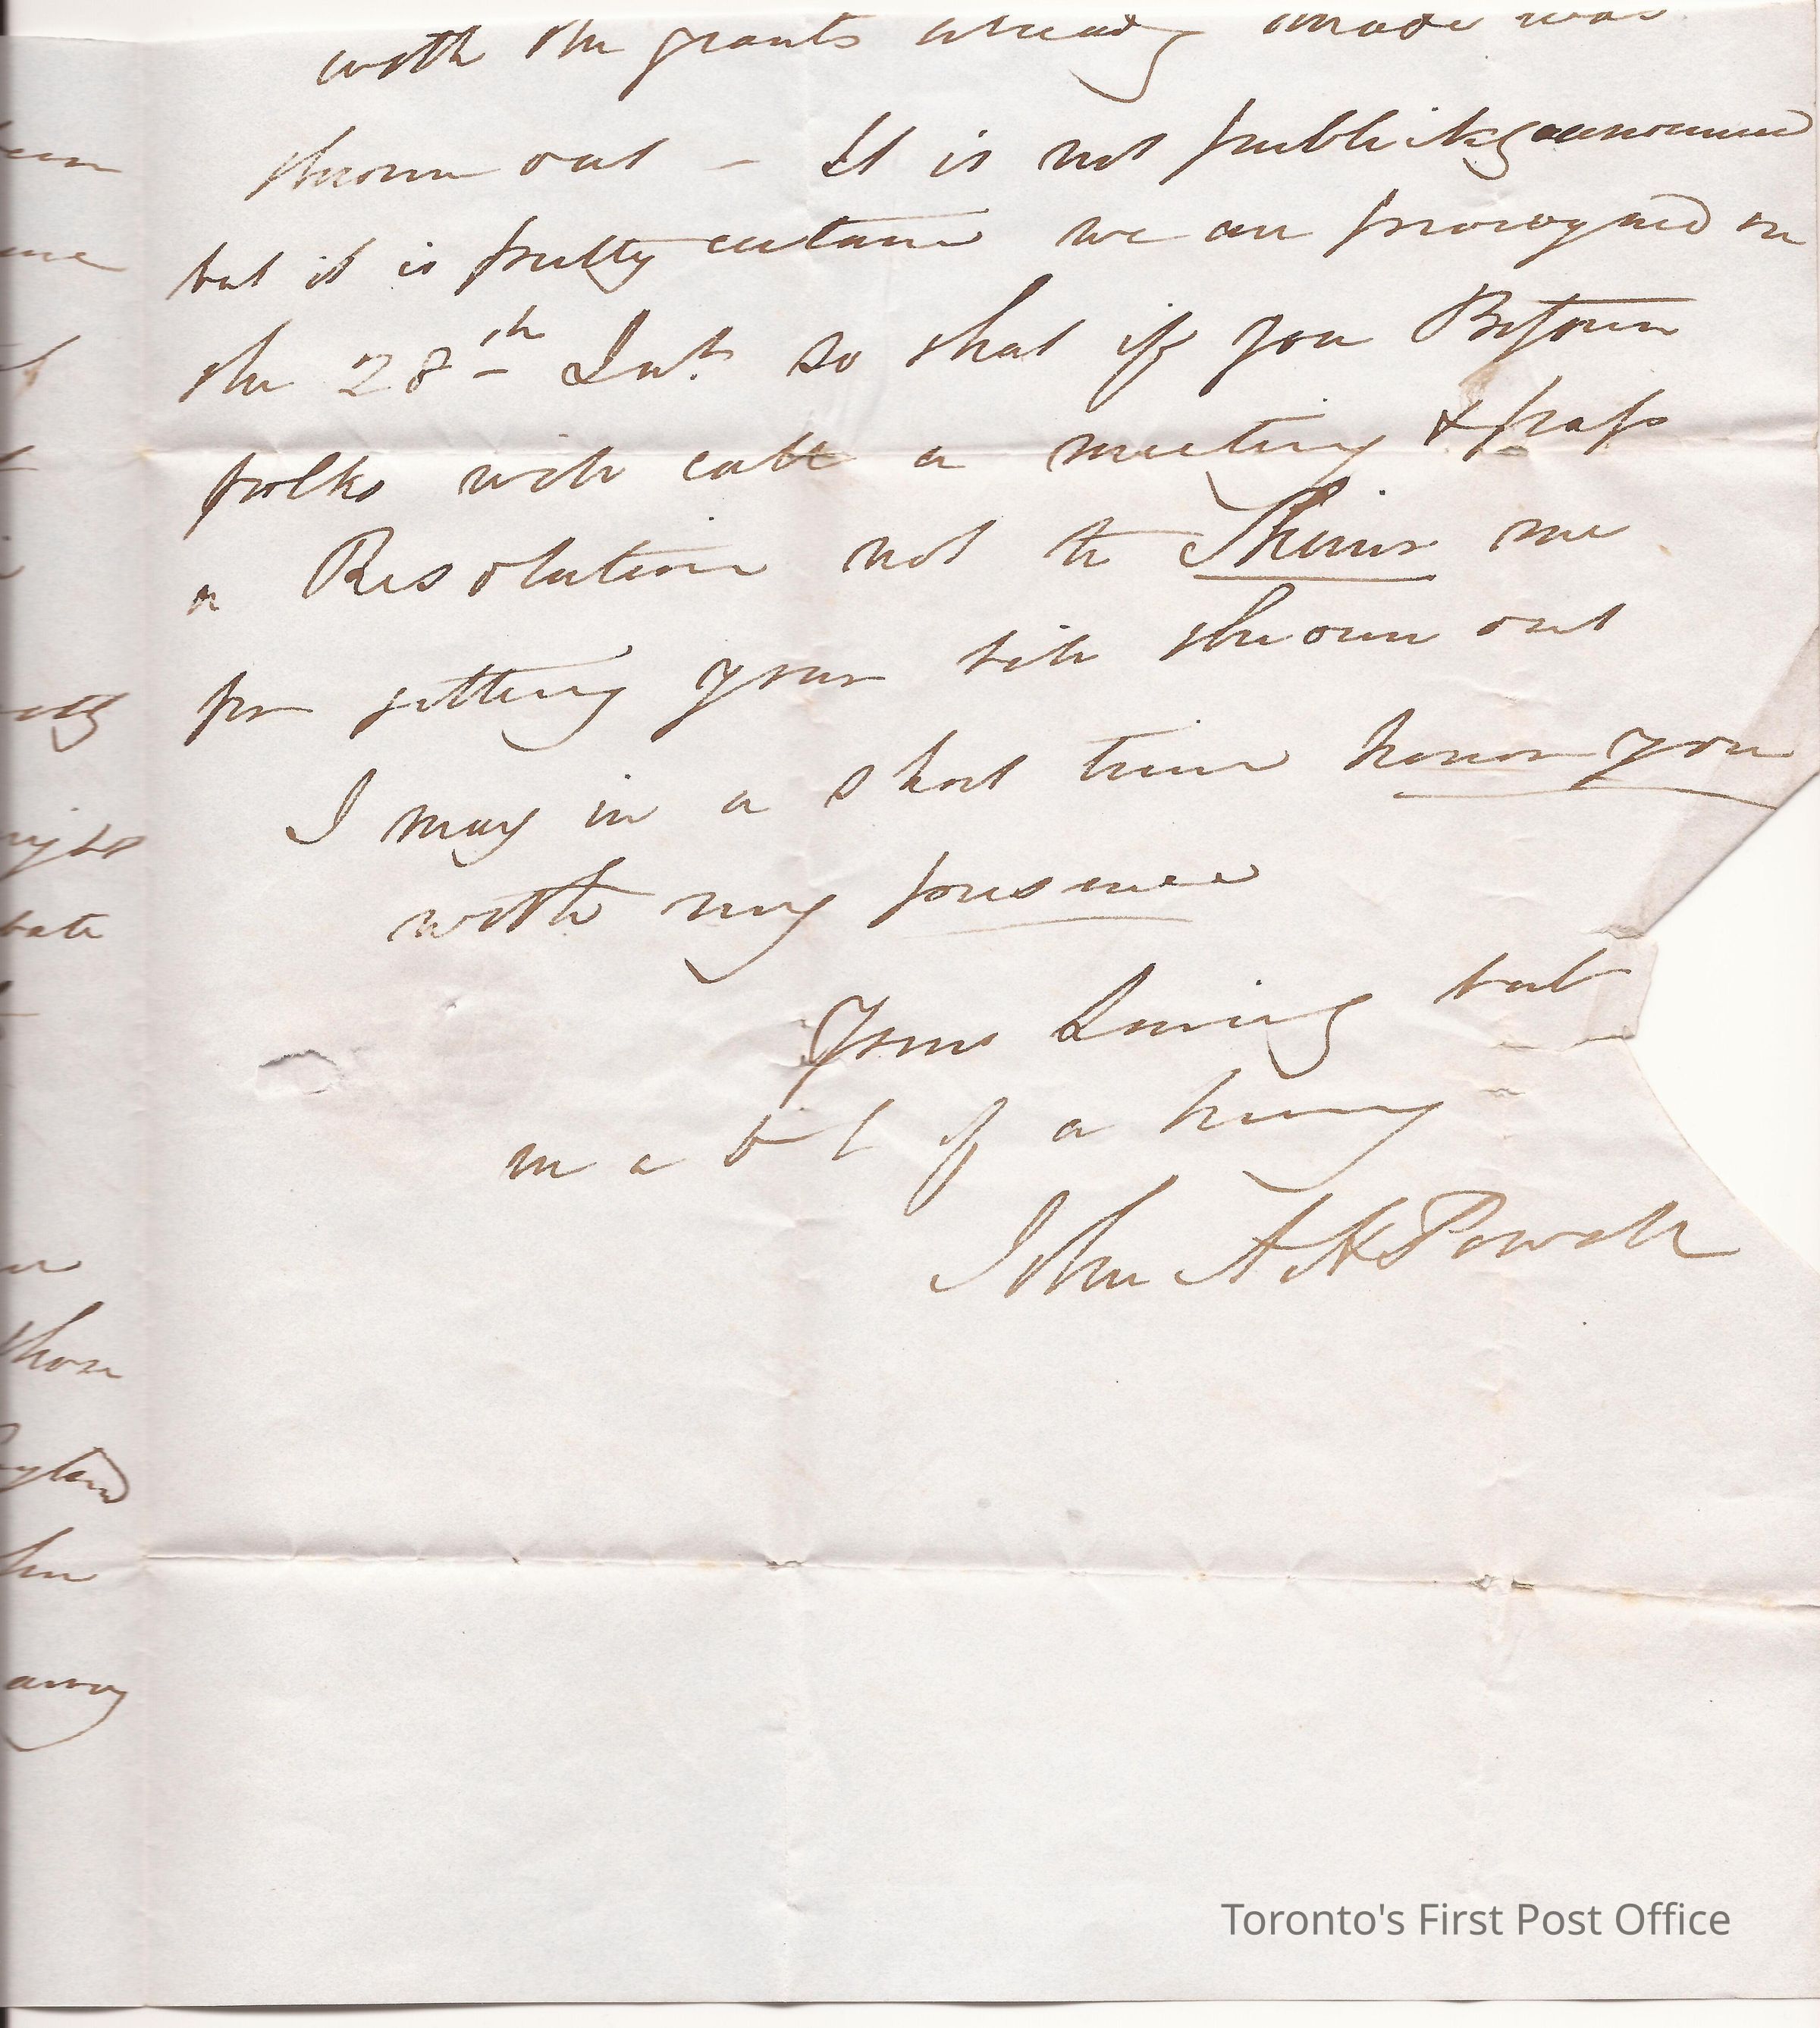 with the grants already made was
thrown out - It is not publickly announced
but it is pretty certain we are prorogued on
the 28th Inst. so that if you Bytown
folks will call a meeting & pass
a Resolution not to Shiver me
for getting your bill thrown out
I may in a short time honor you
with my presence
Yours Loving but
in a b-l of a hurry
John A H Powell
ylen
those
away
bate
Toronto's First Post Office